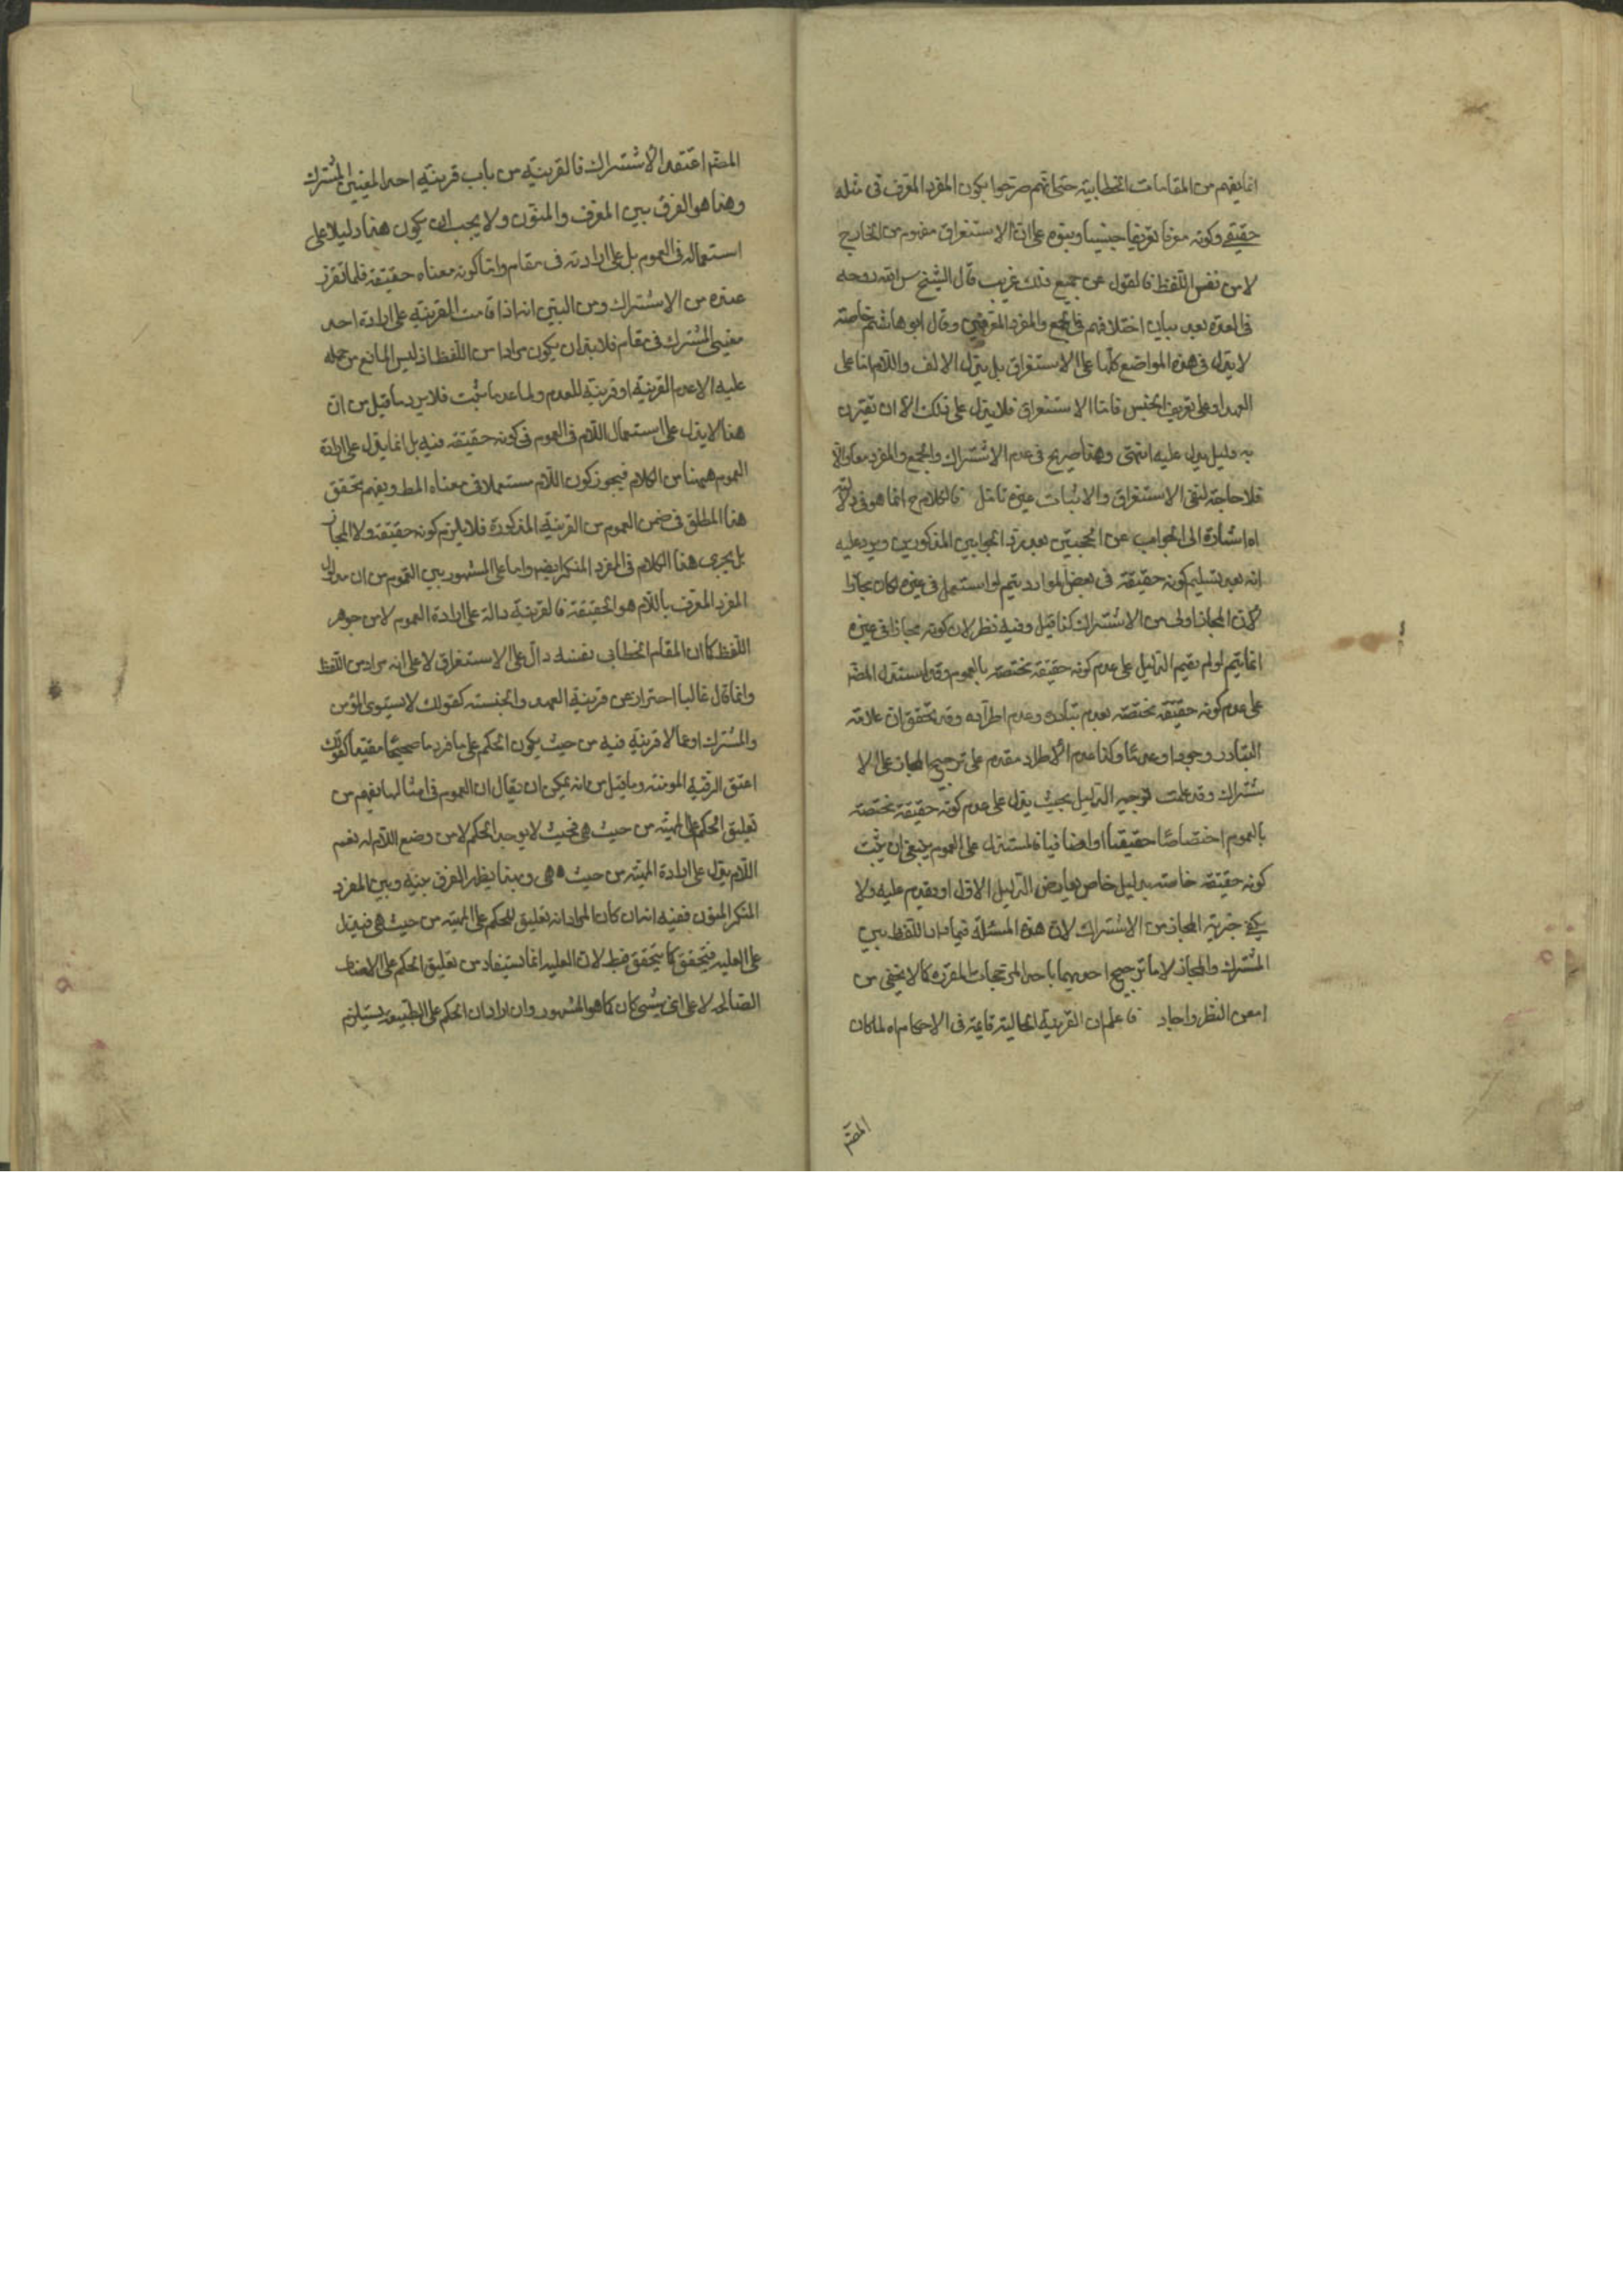 انما يفهم من المقامات الخطابية حتى انهم صرحوا بكون المفرد المعرف في مثله
حقيقى وكونه معرفا تعريفا جنسيا وبنوه على ان الاستغراق مفهوم من الخارج
لا من نفس اللفظ فالقول عن جميع ذلك غريب قال الشيخ قدس الله روحه
فى العدة بعد بيان اختلافهم فى الجمع والمفرد المعرفين وقال ابو هاشم خاصة
لا يدل فى هذه المواضع كلها على الاستغراق بل يدل الالف واللام اما على
العهد او على تعريف الجنس فاما الاستغراق فلا يدل على ذلك الا ان تقترن
به دليل يدل عليه انتهى وهذا صريح فى عدم الاشتراك والجمع والمفرد معا
فلا حاجة لنفى الاستغراق والاثبات عنه تامل فالكلام ح انما هو فى دلالته
اه اشارة الى الجواب عن الحجتين بعد رد الجوابين المذكورين ويرد عليه
انه بعد تسليم كونه حقيقة فى بعض الموارد يتم لو استعمل فى غيره لكان مجازا
لان المجاز اولى من الاشتراك كذا قيل وفيه نظر لان كونه مجازا فى غيره
انما يتم لو لم يقم الدليل على عدم كونه حقيقة مختصة بالعموم وقد استدل المصنف
على عدم كونه حقيقة مختصة بعدم تبادره وعدم اطراده وقد تحقق ان علامة
التبادر وجودا وعدما وكذا عدم الاطراد مقدم على ترجيح المجاز على الا
شتراك وقد علمت توجيه الدليل بحيث يدل على عدم كونه حقيقة مختصة
بالعموم اختصاصا حقيقيا او اضافيا فالمستدل على العموم ينبغى ان يثبت
كونه حقيقة خاصة بدليل خاص يعارض الدليل الاول او يقدم عليه ولا
يكفى خيرية المجاز من الاشتراك لان هذه المسئلة فيما دار اللفظ بين
المشترك والمجاز لا ما ترجيح احديهما باحد المرجحات المقررة كما لا يخفى من
امعن النظر واجاد فاعلم ان القرينة الحالية قائمة فى الاحكام اه لما كان
المصنف
المصنف اعتقد الاشتراك فالقرينة من باب قرينة احد المعنيين المشترك
وهذا هو الفرق بين المعرف والمنون ولا يجب ان يكون هذا دليلا على
استعماله فى العموم بل على ارادته فى مقام واما كونه معناه حقيقة فلما تقرر
عنده من الاشتراك ومن البين انه اذا قامت القرينة على ارادة احد
معنيى المشترك فى مقام فلا بد ان يكون مرادا من اللفظ اذ ليس المانع من حمله
عليه الا عدم القرينة او قرينة للعدم ولما عدما ثبت فلا يرد ما قيل من ان
هذا لا يدل على استعمال اللام فى العموم فى كونه حقيقة فيه بل انما يدل على ارادة
العموم ههنا من الكلام فيجوز كون اللام مستعملا فى معناه المط ويفهم تحقق
هذا المطلق فى ضمن العموم من القرينة المذكورة فلا يلزم كونه حقيقة ولا المجاز
بل يجرى هذا الكلام فى المفرد المنكر ايضا واما على المشهور بين القوم من ان مدلول
المفرد المعرف باللام هو الحقيقة فالقرينة دالة على ارادة العموم لا من جوهر
اللفظ كما ان المقام الخطابى بنفسه دال على الاستغراق لا على انه مراد من اللفظ
وانما قال غالبا احتراز عن قرينة العهد والجنسية كقولك لا يستوى المؤمن
والمشرك او عما لا قرينة فيه من حيث يكون الحكم على ما فرد ما صحيحا مقيدا كقولك
اعتق الرقبة المومنة وما قيل من انه يمكن ان يقال ان العموم فى امثالها يفهم من
تعليق الحكم على المهية من حيث هى فحيث لا يوجد الحكم لا من وضع اللام له نعم
اللام يدل على ارادة المهية من حيث هى هى وبهذا يظهر الفرق بينه وبين المفرد
المنكر المنون ففيه انه ان كان المراد انه تعليق للحكم على المهية من حيث هى فيدل
على العلية فيتحقق كلما يتحقق فقط لان العلية انما تستفاد من تعليق الحكم على الاوصاف
الصالحة لا على اى شىء كان كما هو المشهور وان اراد ان الحكم على الطبيعة يستلزم